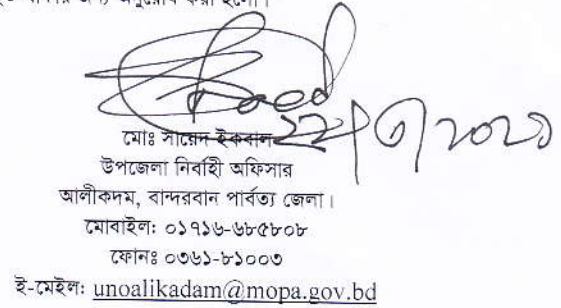 জন্য অনুরোধ করা হলো।
২২/৩/২০২১
মোঃ সায়েদ ইকবাল
উপজেলা নির্বাহী অফিসার
আলীকদম, বান্দরবান পার্বত্য জেলা।
মোবাইল: ০১৭১৬-৬৮৫৮০৮
ফোনঃ ০৩৬১-৮১০০৩
ই-মেইল: unoalikadam@mopa.gov.bd